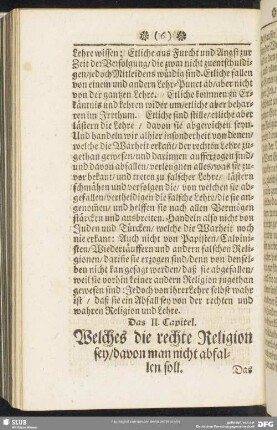 (6)
Lehre wissen: Etliche aus Furcht und Angst zur
Zeit der Verfolgung/die zwar nicht zuentschuldi-
gen/jedoch Mitleidens würdig sind. Etliche fallen
von einem und andern Lehr-Punct ab/aber nicht
von der gantzen Lehre. Etliche kommen zu Er-
käntnis und kehren wider um/etliche aber behar-
ren im Irrthum. Etliche sind stille/etliche aber
lästern die Lehre / davon sie abgewichen seyn.
Und handeln wir alhier insonderheit von denen/
welche die Warheit erkant/der rechten Lehre zu-
gethan gewesen/und darinnen aufferzogen sind/
und davon abfallen/verleugnen alles/was sie zu-
vor bekant/und treten zu falscher Lehre/ lästern
schmähen und verfolgen die/ von welchen sie ab-
gefallen/vertheidigen die falsche Lehre/die sie an-
genommen/ und helffen sie nach allen Vermögen
stärcken und ausbreiten. Handeln also nicht von
Juden und Türcken/ welche die Warheit noch
nie erkant: Auch nicht von Papisten/Calvini-
sten/Wiedertäuffern und andern falschen Reli-
gionen/ darin sie erzogen sind/denn von densel-
ben nicht kan gesagt werden/daß sie abgefallen/
weil sie vorhin keiner andern Religion zugethan
gewesen sind: Jedoch von ihrer Lehre selbst wahr
ist / daß sie ein Abfall sey von der rechten und
wahren Religion und Lehre.
Das II. Capitel.
Welches die rechte Religion
sey/davon man nicht abfal-
len soll.
Das
SLUB